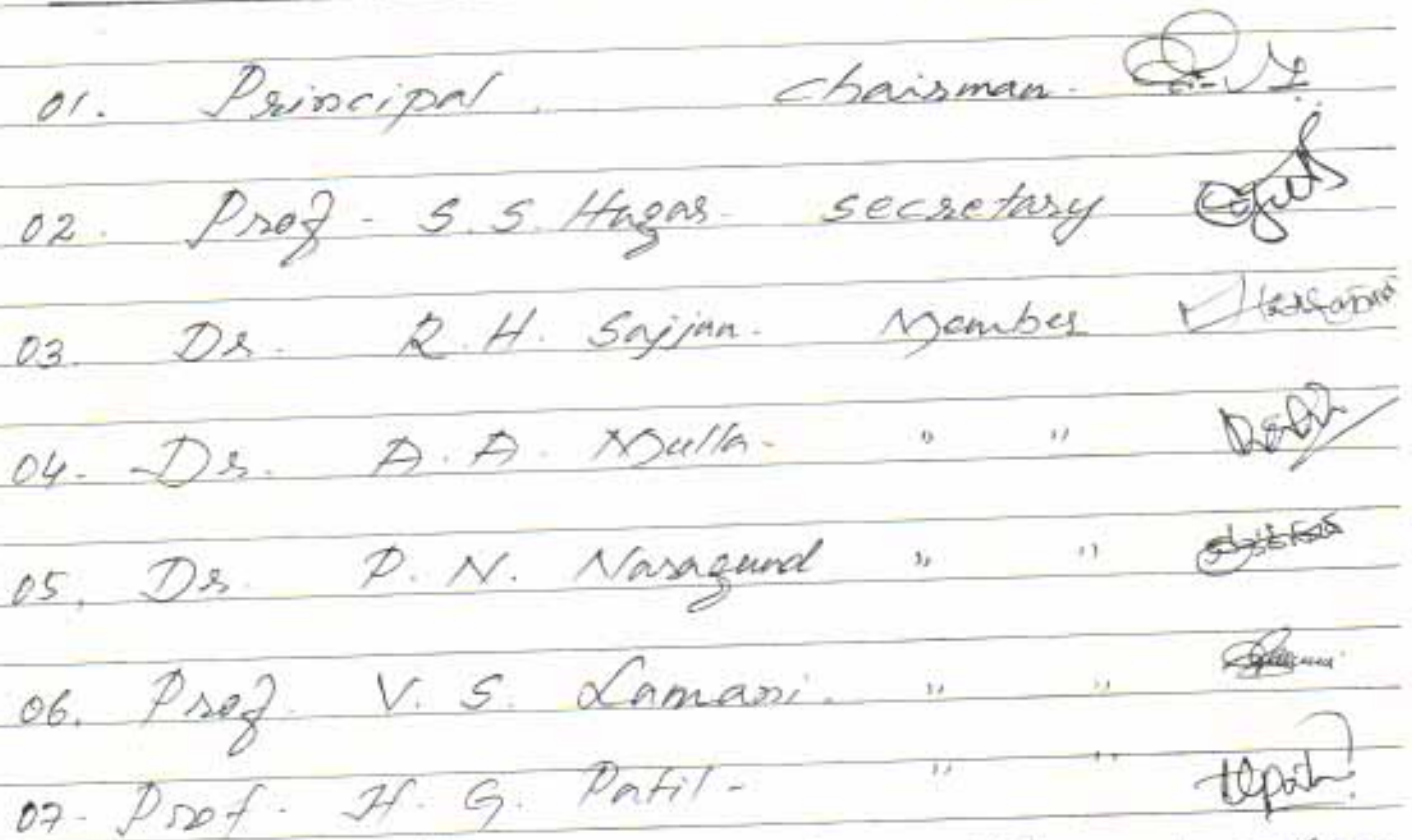 01. Principal. Chairman.
02. Prof - S. S. Hugar - Secretary
03. Dr. R. H. Sajjan. Member
04. Dr. A. A. Mulla - " "
05. Dr. P. N. Naragund " "
06. Prof. V. S. Lamani. " "
07. Prof. H. G. Patil - " "